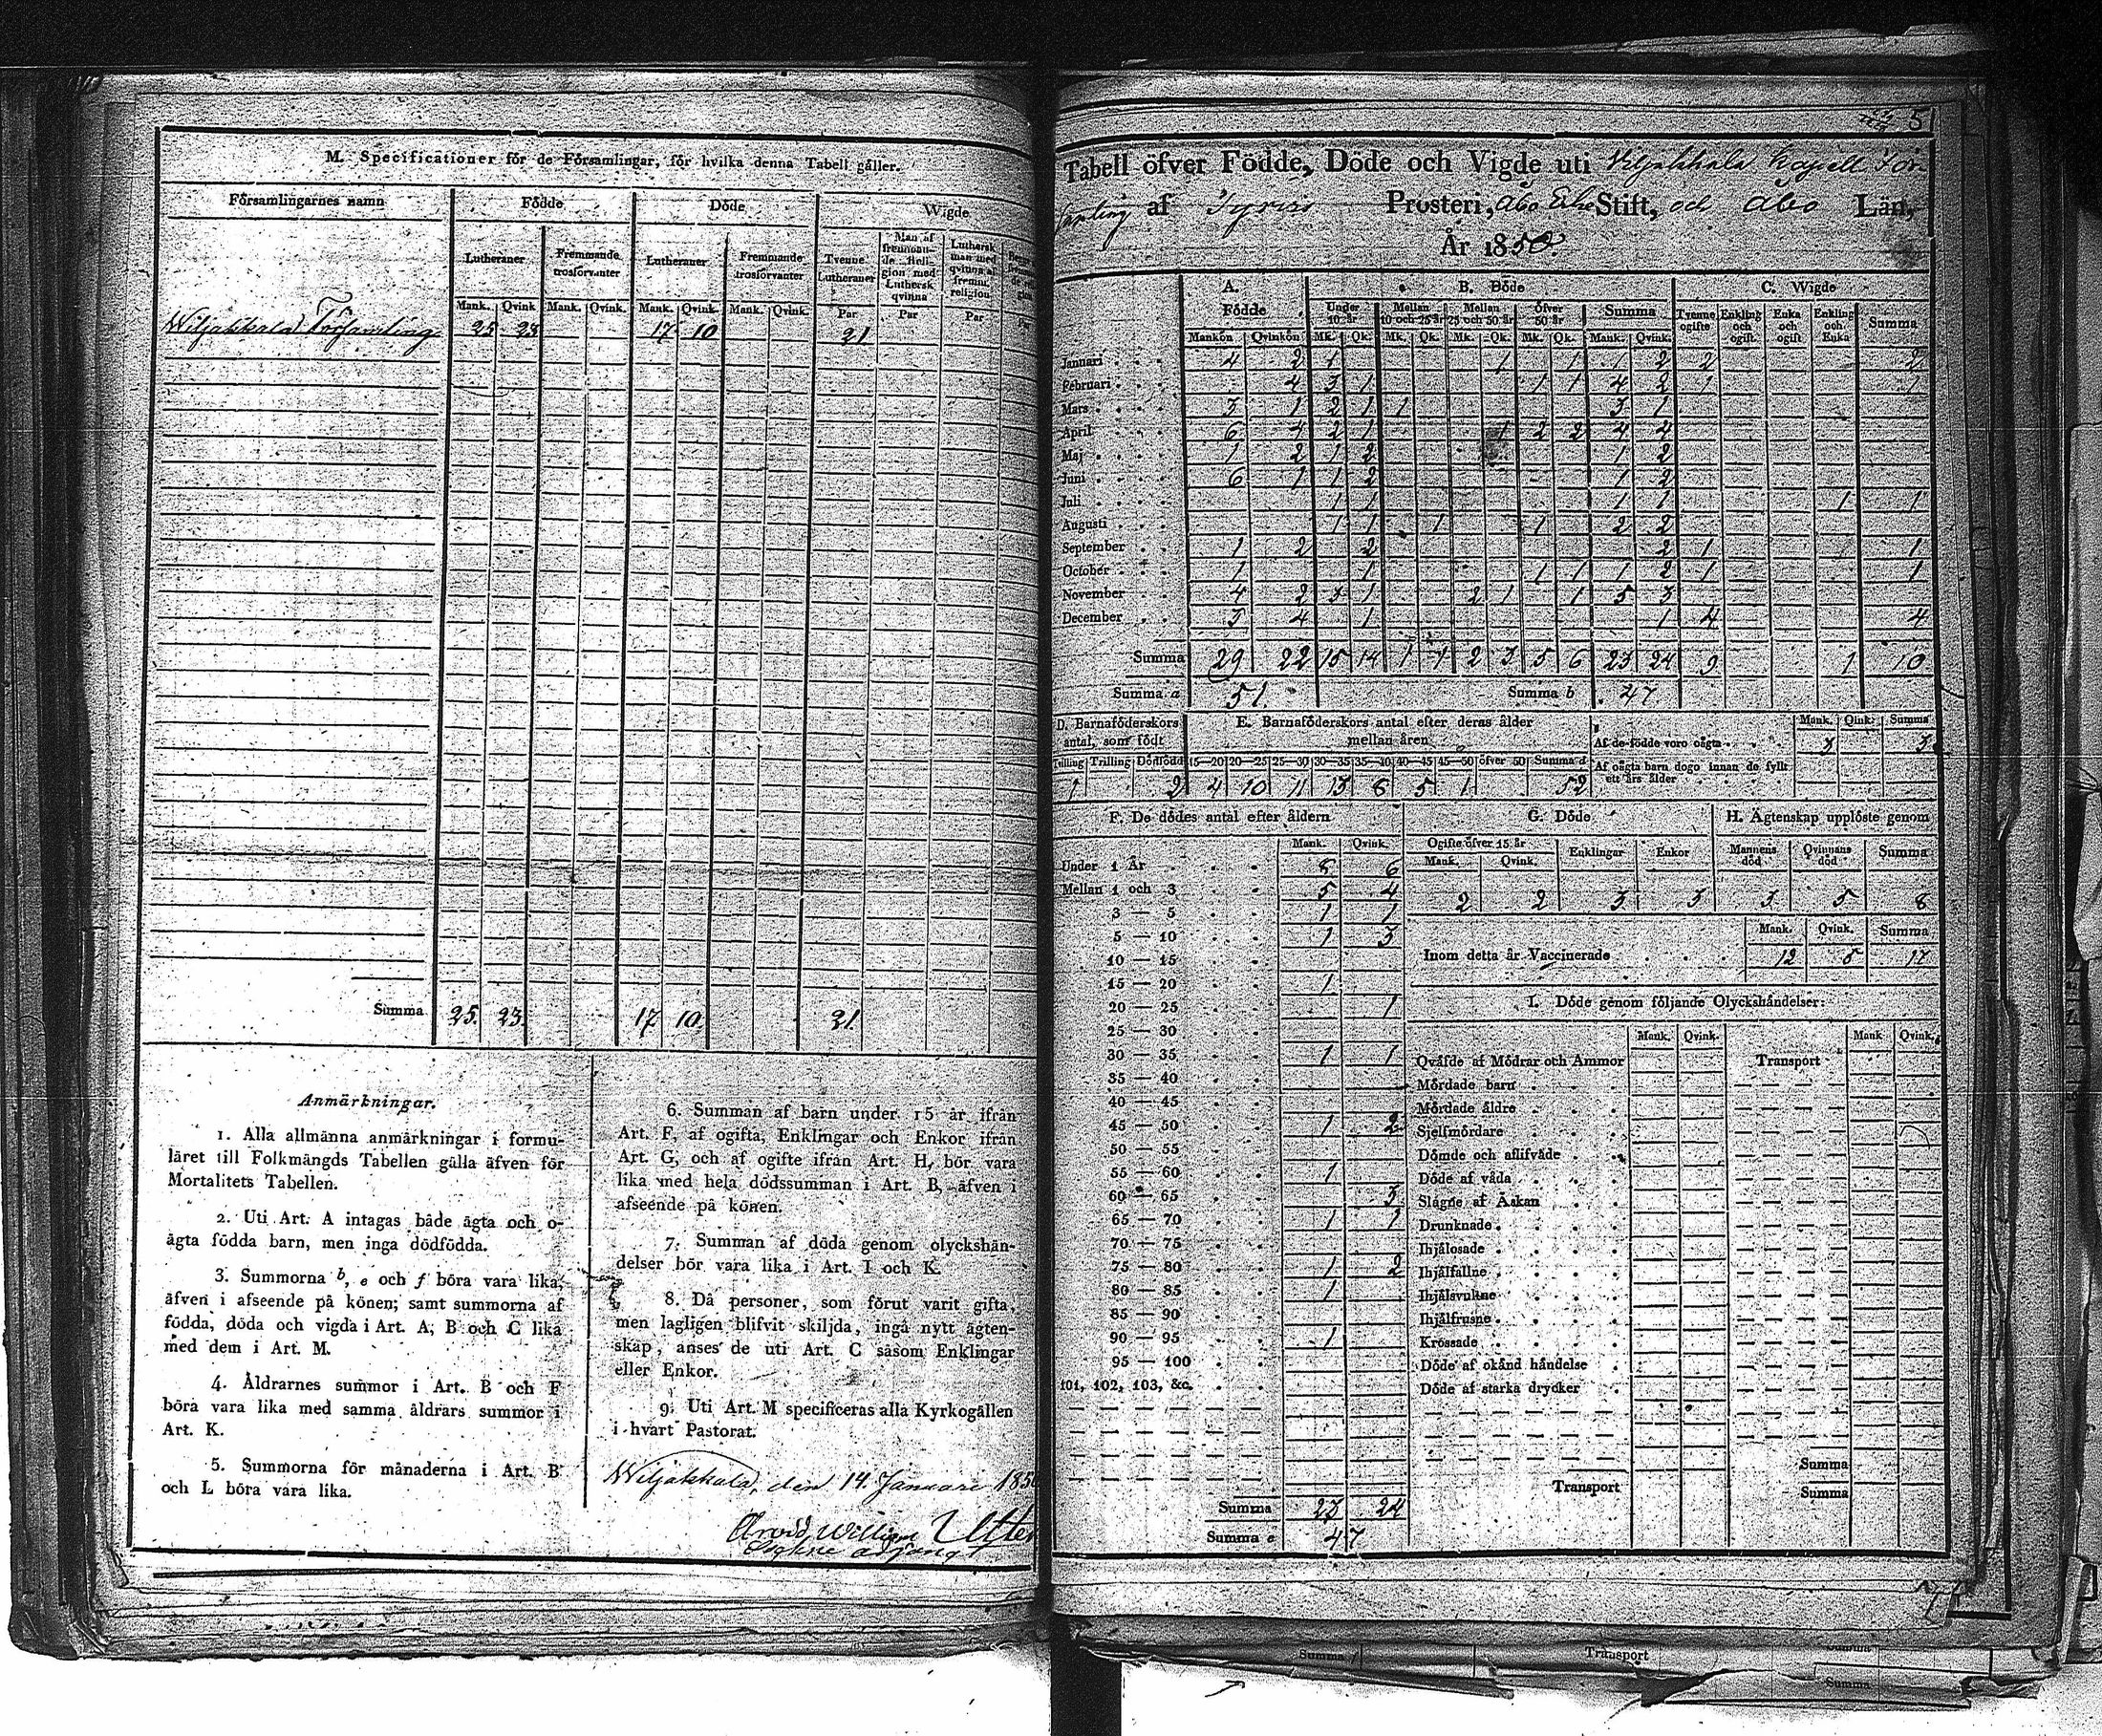 M. Specificationer för de Församlingar, för hvilka denna Tabell gäller.
Församlingarnes namn Födde Döde Wigde
Lutheraner Fremmande trosförvanter Lutheraner Fremmande trosförvanter Tvenne Lutheraner Man af fremmande Religion med Luthersk qvinna Luthersk man med qvinna af fremm. religion
Mank. Qvink. Mank. Qvink. Mank. Qvink. Mank. Qvink. Par Par Par Par
Wiljakkala Församling 25 23 17 10 21
Summa 25. 23. 17 10. 21.
Anmärkningar.
1. Alla allmänna anmärkningar i formu-
läret till Folkmängds Tabellen gälla äfven för
Mortalitets Tabellen.
2. Uti Art. A intagas både ägta och o-
ägta födda barn, men inga dödfödda.
3. Summorna b, e och f böra vara lika,
äfven i afseende på könen; samt summorna af
födda, döda och vigda i Art. A, B och C lika
med dem i Art. M.
4. Åldrarnes summor i Art. B och F
böra vara lika med samma åldrars summor i
Art. K.
5. Summorna för månaderna i Art. B
och L böra vara lika.
6. Summan af barn under 15 år ifrån
Art. F, af ogifta, Enklingar och Enkor ifrån
Art. G, och af ogifte ifrån Art. H, bör vara
lika med hela dödssumman i Art. B, äfven i
afseende på könen.
7. Summan af döda genom olyckshän-
delser bör vara lika i Art. I och K.
8. Då personer, som förut varit gifta,
men lagligen blifvit skiljda, ingå nytt ägten-
skap, anses de uti Art. C såsom Enklingar
eller Enkor.
9. Uti Art. M specificeras alla Kyrkogällen
i hvart Pastorat.
Wiljakkala, den 14. Januari
Arvid William
adjungt
5
Tabell öfver Födde, Döde och Vigde uti Viljakkala Capell För-
samling af Tyrvis Prosteri, Åbo Erke Stift, och Åbo Län,
År 1850.
A. Födde B. Döde C. Wigde
Under 10 år Mellan 10 och 25 år Mellan 25 och 50 år Öfver 50 år Summa Tvenne ogifte Enkling och ogift Enka och ogift Enkling och Enka Summa
Mankön Qvinkön Mk. Qk. Mk. Qk. Mk. Qk. Mk. Qk. Mank. Qvink.
Januari 4 2 1 1 1 1 2 2 2
Februari 4 3 1 1 1 4 2 1 1
Mars 3 1 2 1 1 3 1
April 6 4 2 1 1 2 2 4 4
Maj 1 2 1 2 1 2
Juni 6 1 1 2 1 2
Juli 1 1 1 1 1 1
Augusti 1 1 1 1 2 2
September 1 2 2 2 1 1
October 1 1 1 1 1 2 1 1
November 4 2 3 1 2 1 1 5 3
December 3 4 1 1 4 4
Summa 29 22 15 14 1 1 2 3 5 6 23 24 9 1 10
Summa a 51. Summa b 47
D. Barnaföderskors antal, som födt
Tvilling Trilling Dödfödd
1 2
E. Barnaföderskors antal efter deras ålder mellan åren
15—20 20—25 25—30 30—35 35—40 40—45 45—50 öfver 50 Summa d
4 10 11 13 8 5 1 52
Mank. Qink. Summa
Af de födde voro oägta 3 3
Af oägta barn dogo innan de fyllt
ett års ålder
F. De dödes antal efter åldern
Mank. Qvink.
Under 1 År 8 6
Mellan 1 och 3 5 4
3 — 5 1 1
5 — 10 1 3
10 — 15
15 — 20 1
20 — 25 1
25 — 30
30 — 35 1 1
35 — 40
40 — 45
45 — 50 1 2
50 — 55
55 — 60 1
60 — 65 3
65 — 70 1 1
70 — 75
75 — 80 1 2
80 — 85 1
85 — 90
90 — 95 1
95 — 100
101, 102, 103, &c.
Summa 23 24
Summa e 47
G. Döde
Ogifte öfver 15 år Enklingar Enkor
Mank. Qvink.
2 2 3 3
H. Ägtenskap upplöste genom
Mannens död Qvinnans död Summa
3 5 8
Mank. Qvink. Summa
Inom detta år Vaccinerade 12 5 17
I. Döde genom följande Olyckshändelser:
Mank. Qvink. Mank Qvink.
Qväfde af Mödrar och Ammor Transport
Mördade barn
Mördade äldre
Sjelfmördare
Dömde och aflifvade
Döde af våda
Slagne af Åskan
Drunknade
Ihjälosade
Ihjälfallne
Ihjälsvultne
Ihjälfrusne
Krossade
Döde af okänd händelse
Döde af starka drycker
Summa
Transport Summa
Summa Transport Summa
Summa